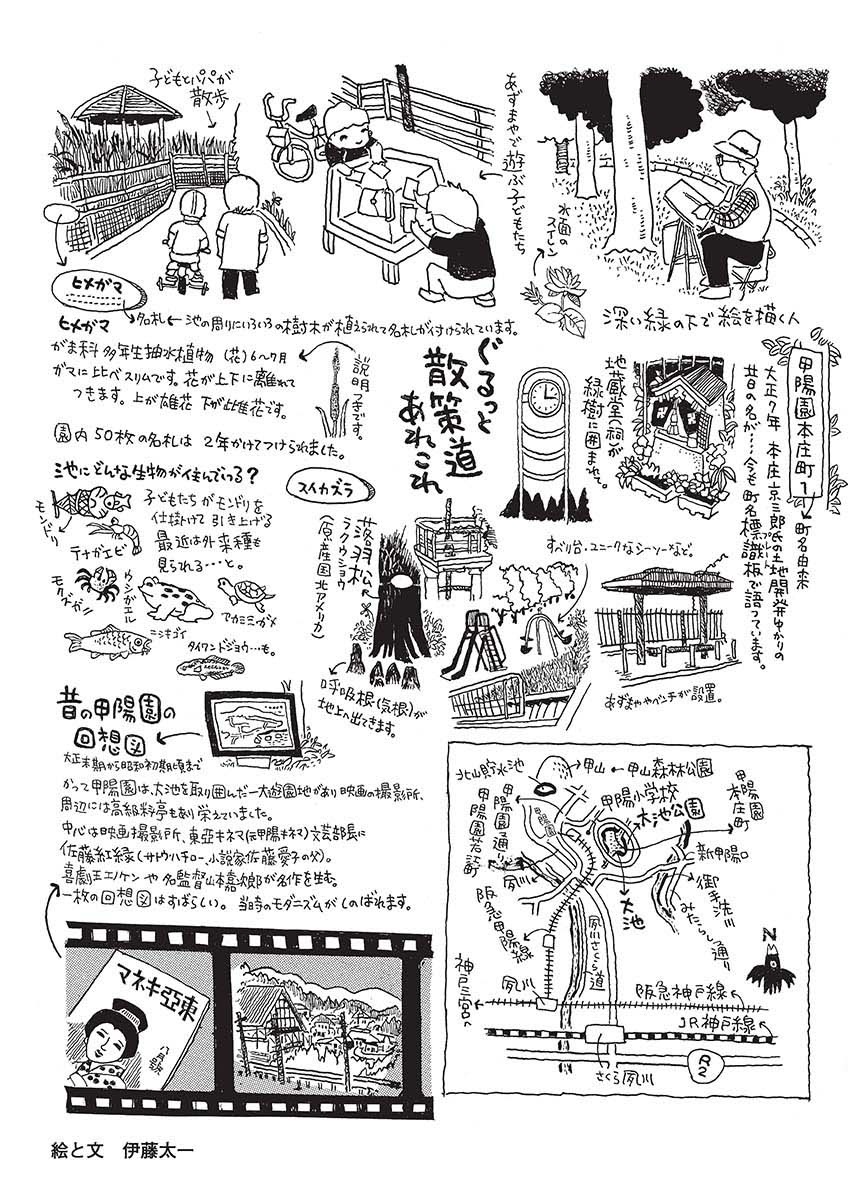 子どもとパパが
散歩
あずまやで遊ぶ子どもたち
水面の
スイレン
深い緑の下で絵を描く人
ヒメガマ
ヒメガマ
名札
池の周りにいろいろの樹木が植えられて名札が付けられています。
がま科 多年生抽水植物 (花)6〜7月
ガマに比べスリムです。花が上下に離れて
つきます。上が雄花 下が雌花です。
説明つきです。
園内50枚の名札は 2年かけてつけられました。
ぐるっと
散策道
あれこれ
地蔵堂(祠)が
緑樹に囲まれて。
甲陽園本庄町1
町名由来
大正7年 本庄京三郎氏の土地開発ゆかりの
昔の名が……今も町名標識板で語っています。
プレート
池にどんな生物が住んでいる?
子どもたちがモンドリを
仕掛けて引き上げる
最近は外来種も
見られる…と。
モンドリ
テナガエビ
モクズガニ
ウシガエル
アカミミガメ
ニシキゴイ
タイワンドジョウ…も。
スイカズラ
落羽松
ラクウショウ
(原産国北アメリカ)
呼吸根(気根)が
地上へ出てきます。
すべり台・ユニークなシーソーなど。
あずまややベンチが設置。
昔の甲陽園の
回想図
大正末期から昭和初期頃まで
かつて甲陽園は、大池を取り囲んだ一大遊園地があり映画の撮影所、
周辺には高級料亭もあり栄えていました。
中心は映画撮影所、東亜キネマ(元甲陽キネマ)文芸部長に
佐藤紅緑(サトウハチロー、小説家佐藤愛子の父)。
喜劇王エノケンや名監督山本嘉次郎が名作を生む。
一枚の回想図はすばらしい。 当時のモダニズムがしのばれます。
東亞キネマ
八月号
北山貯水池
甲山
甲山森林公園
甲陽園
甲陽園通り
甲陽園若江町
甲陽小学校
大池公園
甲陽園
本庄町
新甲陽口
夙川
阪急甲陽線
大池
御手洗川
みたらし通り
夙川さくら道
N
神戸三宮へ
夙川
阪急神戸線
JR神戸線
さくら夙川
R2
絵と文 伊藤太一